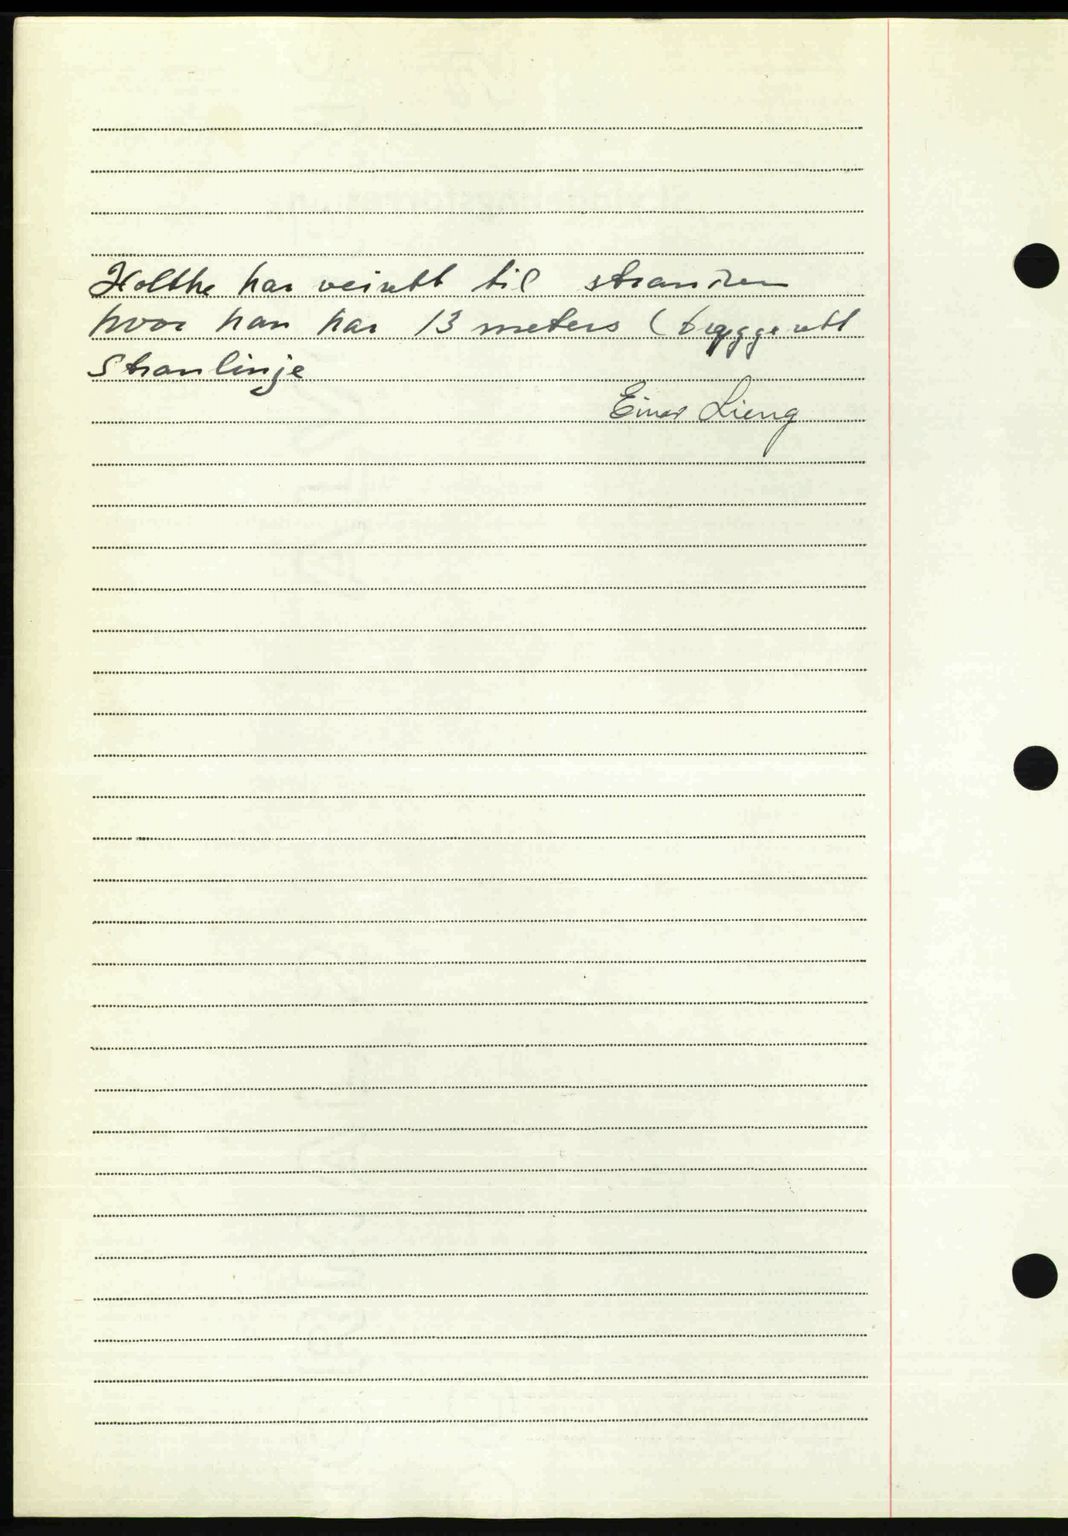 Holthe har veirett til stranden
hvor han har 13 meters (byggerett
Stranlinje
Einar Lieng